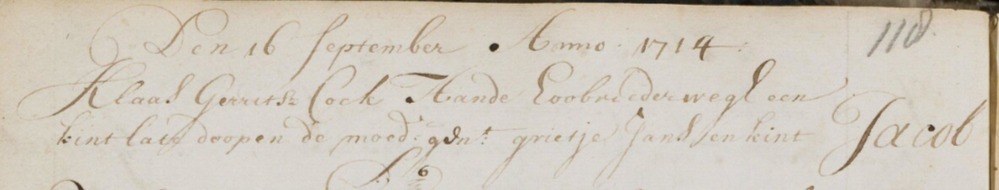 Den 16 September Anno 1714. 118.
Klaas Gerrits: Cock Aande Loobrederwegh een
kint laten doopen de moedr gent grietje Jans en kint Jacob
6